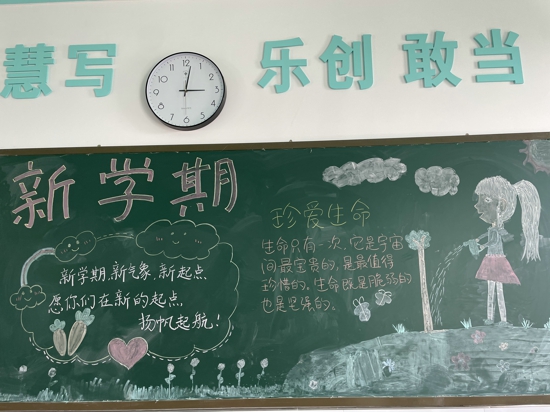 慧写 乐创 敢当
新学期
新学期,新气象 新起点
愿你们在新的起点,
扬帆起航!
珍爱生命
生命只有一次,它是宇宙
间最宝贵的,是最值得
珍惜的。生命既是脆弱的
也是坚强的。